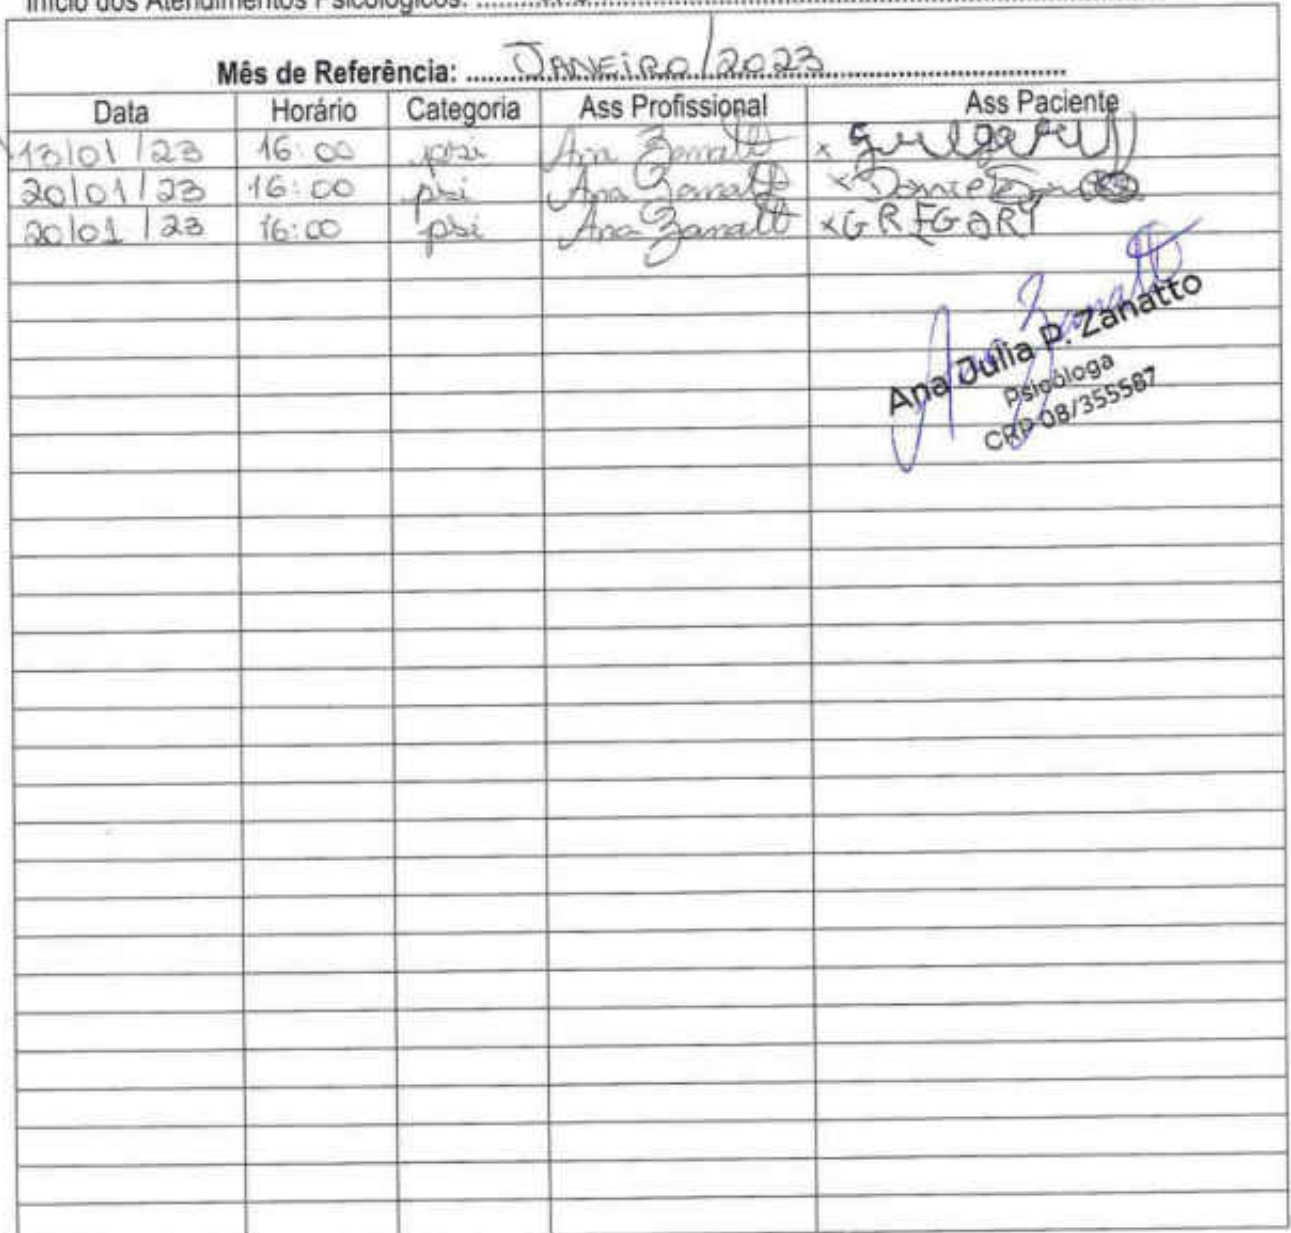 Início dos Atendimentos Psicológicos:
Mês de Referência: JANEIRO/2023
Data Horário Categoria Ass Profissional Ass Paciente
13/01/23 16:00 psi Ana Zanatt x
20/01/23 16:00 psi Ana Zanatt x
20/01/23 16:00 psi Ana Zanatt x GREGORY
Ana Julia P. Zanatto
Psicóloga
CRP 08/355587